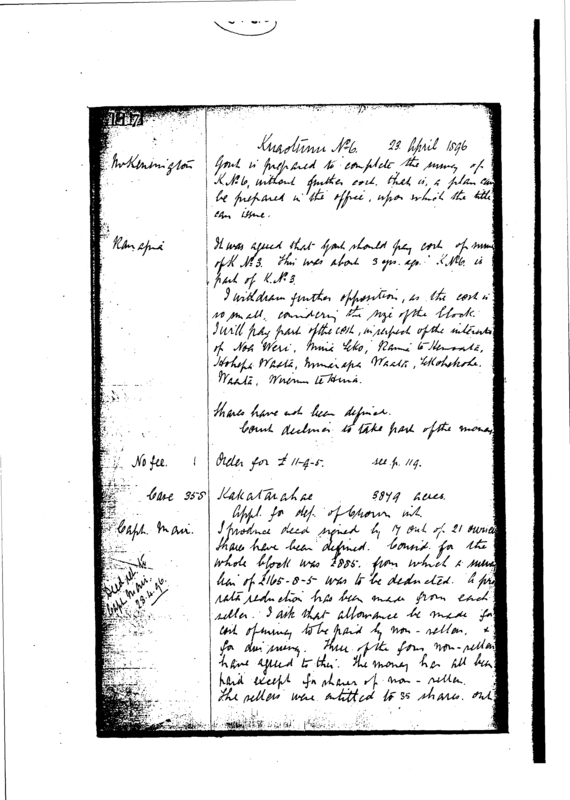 Kuaotunu No 6. 23 April 1896
Mr Kensington Govt is prepared to complete the survey of
K. No 6, without further cost. that is, a plan can
be prepared in the office, upon which the title
can issue.
Ranapia It was agreed that Govt should pay cost of survey
of K No 3. This was about 3 yrs. ago. K No 6 is
part of K. No 3
I withdraw further opposition, as the cost is
so small, considering the size of the block.
I will pay part of the cost, in respect of the interests
of
Waata,
Shares have not been defined.
Court declines to take part of the money
No fee. 1 Order for £ 11-9-5. see p. 119.
Case 355 Kakatarahae 5879 acres.
Appl. for def. of Crown int
Capt. Mair. I produce deed signed by 17 out of 21 owners
Shares have been defined. Consid. for the
whole block was £885. from which a survey
lien of £165-0-5 was to be deducted. A pro
rata reduction has been made from each
seller. I ask that allowance be made for
cost of survey to be paid by non-sellers. &
for survey. Three of the four non-sellers
have agreed to this. The money has all been
paid except for shares of non-sellers.
The sellers were entitled to 35 shares. out
Deed ret. to
Capt Mair.
23.4.96.